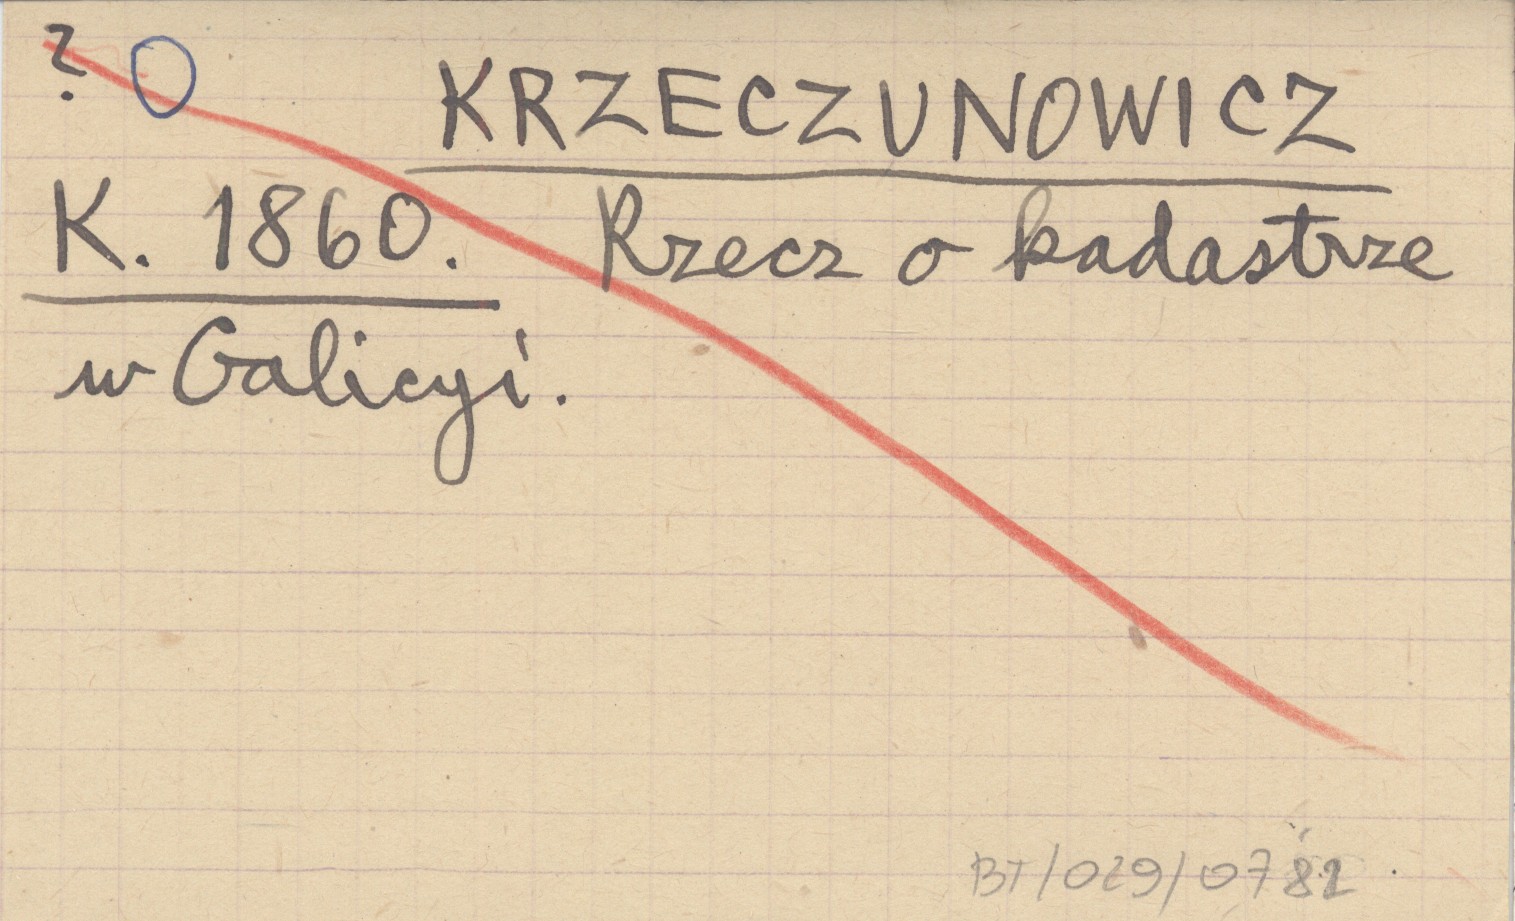 ?
KRZECZUNOWICZ
K. 1860. Rzecz o kadastrze
w Galicyi.
BT/029/0782